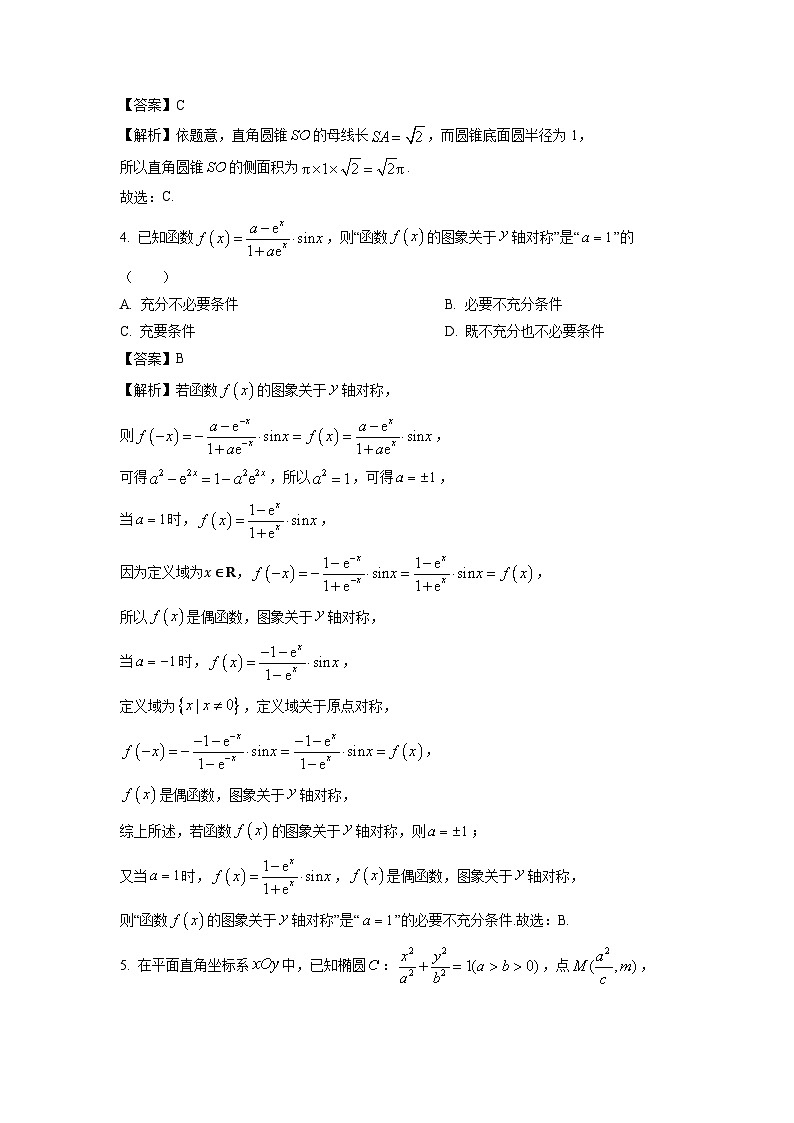 【答案】C
【解析】依题意，直角圆锥 SO 的母线长 SA = √2 ，而圆锥底面圆半径为 1，
所以直角圆锥 SO 的侧面积为 π×1×√2 = √2π .
故选：C.
4. 已知函数 f(x) = (a − e^x)/(1 + ae^x) · sin x ，则“函数 f(x) 的图象关于 y 轴对称”是“ a = 1 ”的
（　　）
A. 充分不必要条件 B. 必要不充分条件
C. 充要条件 D. 既不充分也不必要条件
【答案】B
【解析】若函数 f(x) 的图象关于 y 轴对称，
则 f(−x) = −(a − e^(−x))/(1 + ae^(−x)) · sin x = f(x) = (a − e^x)/(1 + ae^x) · sin x ，
可得 a² − e^(2x) = 1 − a²e^(2x) ，所以 a² = 1 ，可得 a = ±1 ，
当 a = 1 时， f(x) = (1 − e^x)/(1 + e^x) · sin x ，
因为定义域为 x∈R， f(−x) = −(1 − e^(−x))/(1 + e^(−x)) · sin x = (1 − e^x)/(1 + e^x) · sin x = f(x) ，
所以 f(x) 是偶函数，图象关于 y 轴对称，
当 a = −1 时， f(x) = (−1 − e^x)/(1 − e^x) · sin x ，
定义域为 {x | x ≠ 0} ，定义域关于原点对称，
f(−x) = −(−1 − e^(−x))/(1 − e^(−x)) · sin x = (−1 − e^x)/(1 − e^x) · sin x = f(x) ，
f(x) 是偶函数，图象关于 y 轴对称，
综上所述，若函数 f(x) 的图象关于 y 轴对称，则 a = ±1 ；
又当 a = 1 时， f(x) = (1 − e^x)/(1 + e^x) · sin x ， f(x) 是偶函数，图象关于 y 轴对称，
则“函数 f(x) 的图象关于 y 轴对称”是“ a = 1 ”的必要不充分条件.故选：B.
5. 在平面直角坐标系 xOy 中，已知椭圆 C ： x²/a² + y²/b² = 1(a > b > 0) ，点 M(a²/c , m) ，